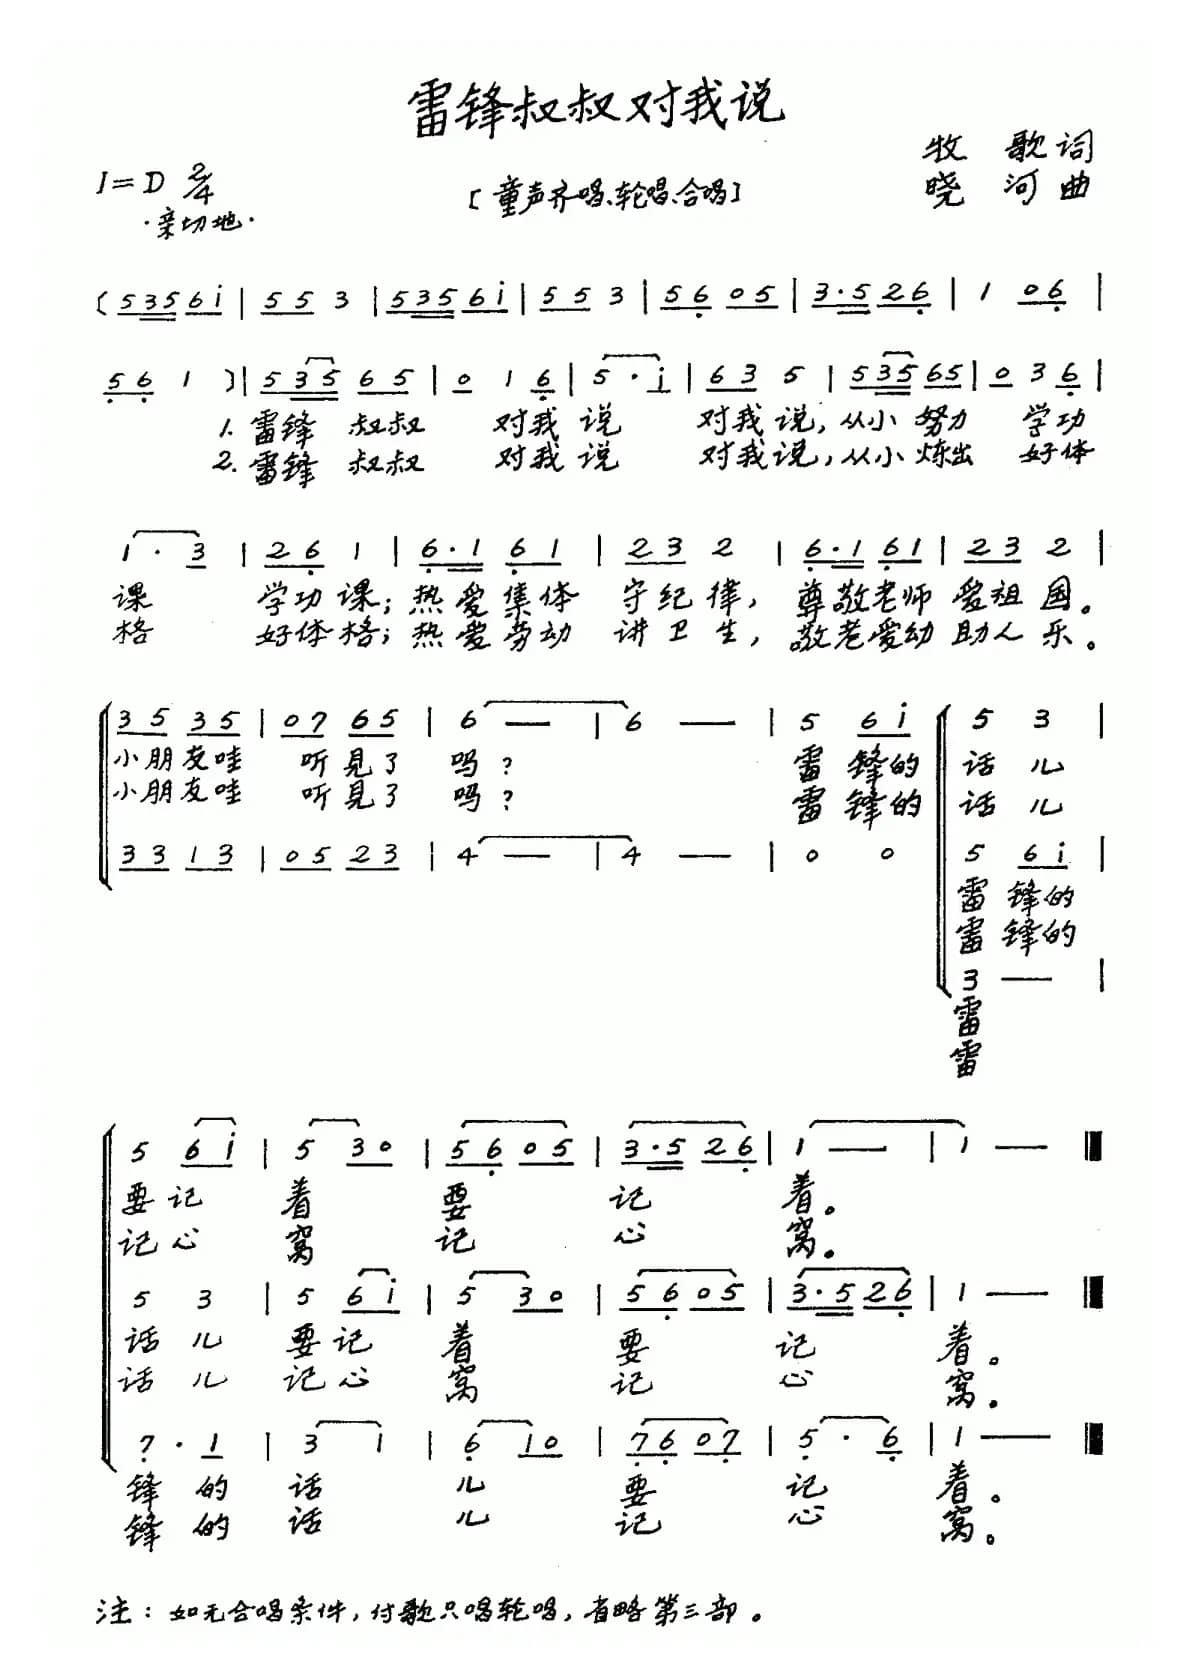 雷锋叔叔对我说
牧 歌词
1=D 2/4
[童声齐唱、轮唱、合唱]
晓 河曲
·亲切地·
(5356i | 55 3 | 5356i | 55 3 | 56 05 | 3·526 | 1 06 |
56 1 )| 535 65 | 0 1 6 | 5·i | 63 5 | 53565 | 0 3 6 |
1. 雷锋 叔叔 对我 说 对我 说, 从小 努力 学功
2. 雷锋 叔叔 对我 说 对我 说, 从小 炼出 好体
1·3 | 26 1 | 6·1 61 | 23 2 | 6·1 61 | 23 2 |
课 学功 课; 热爱集体 守纪律, 尊敬老师 爱祖国。
格 好体 格; 热爱劳动 讲卫生, 敬老爱幼 助人乐。
35 35 | 07 65 | 6 — | 6 — | 5 6i | 5 3 |
小朋友哇 听见了 吗? 雷 锋的 话 儿
小朋友哇 听见了 吗? 雷 锋的 话 儿
33 13 | 05 23 | 4 — | 4 — | 0 0 | 5 6i |
雷 锋的
雷 锋的
3 — |
雷
雷
5 6i | 5 30 | 56 05 | 3·5 26 | 1 — | 1 — ‖
要 记 着 要 记 着。
记 心 窝 记 心 窝。
5 3 | 5 6i | 5 30 | 56 05 | 3·5 26 | 1 — ‖
话 儿 要 记 着 要 记 着。
话 儿 记 心 窝 记 心 窝。
7·1 | 3 1 | 6 10 | 76 07 | 5·6 | 1 — ‖
锋 的 话 儿 要 记 着。
锋 的 话 儿 记 心 窝。
注: 如无合唱条件, 付歌只唱轮唱, 省略第三部。